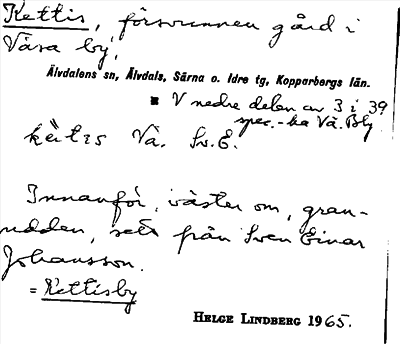 Kettis, försvunnen gård i
Våsa by,
Älvdalens sn, Älvdals, Särna o. Idre tg, Kopparbergs län.
V nedre delen av 3 i 39
spec.-ka Vå. Bly
Vå. Sv. E.
Innanför, väster om, gran-
udden, sett från Sven Einar
Johansson.
= Kettisby
HELGE LINDBERG 1965.